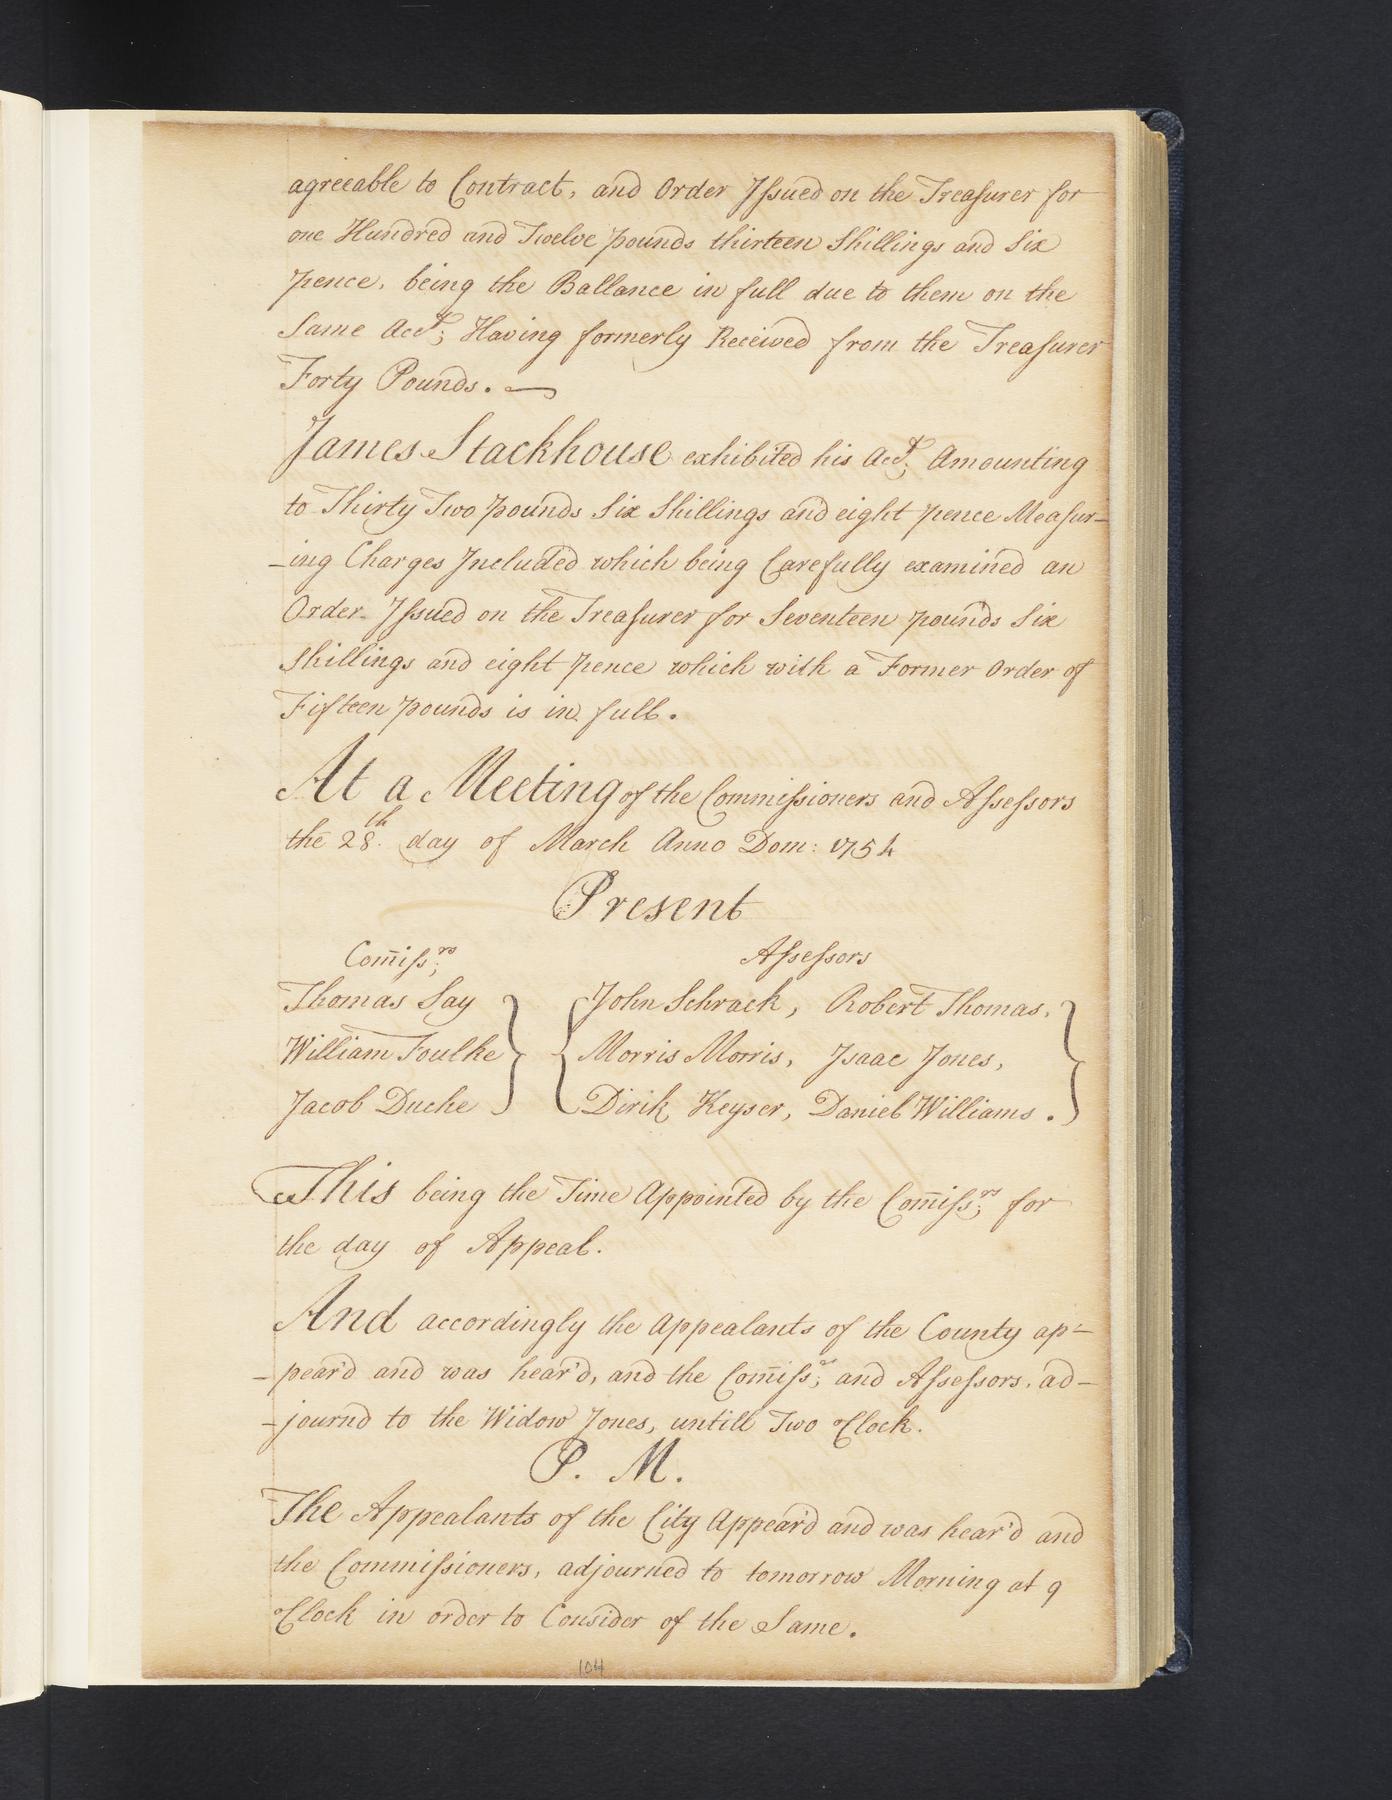 agreeable to Contract, and Order Issued on the Treasurer for
one Hundred and Twelve pounds thirteen Shillings and Six
pence, being the Ballance in full due to them on the
Same Acct; Having formerly Received from the Treasurer
Forty Pounds.
James Stackhouse exhibited his Acct; Amounting
to Thirty Two pounds Six Shillings and eight pence Measur-
-ing Charges Included which being Carefully examined an
Order Issued on the Treasurer for Seventeen pounds Six
Shillings and eight pence which with a Former Order of
Fifteen pounds is in full.
At a Meeting of the Commissioners and Assessors
the 28th. day of March Anno Dom: 1754
Present
Com̄issrs; Assessors
Thomas Say } { John Schrack, Robert Thomas, }
William Foulke Morris Morris, Isaac Jones,
Jacob Duche Dirik Keyser, Daniel Williams.
This being the Time Appointed by the Com̄issrs; for
the day of Appeal.
And accordingly the Appealants of the County ap-
-pear'd and was hear'd, and the Com̄issrs; and Assessors, ad-
-journd to the Widow Jones, untill Two oClock.
P. M.
The Appealants of the City Appear'd and was hear'd and
the Commissioners, adjourned to tomorrow Morning at 9
oClock in order to Consider of the Same.
104